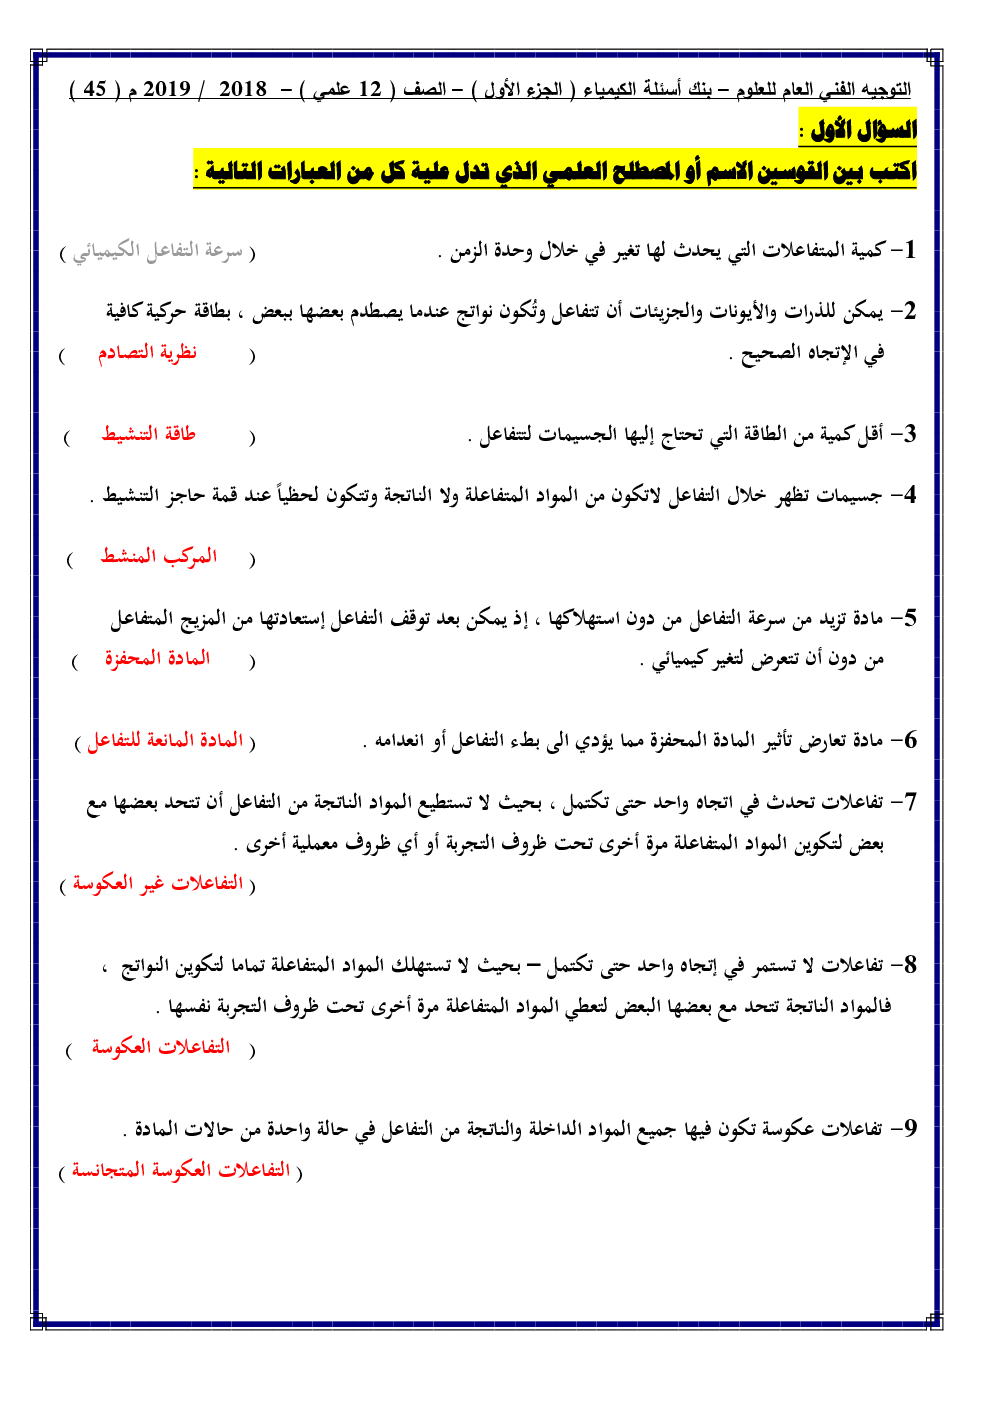 التوجيه الفني العام للعلوم – بنك أسئلة الكيمياء ( الجزء الأول ) – الصف ( 12 علمي ) – 2018 / 2019 م ( 45 )
السؤال الأول :
اكتب بين القوسين الاسم أو المصطلح العلمي الذي تدل علية كل من العبارات التالية :
1- كمية المتفاعلات التي يحدث لها تغير في خلال وحدة الزمن . ( سرعة التفاعل الكيميائي )
2- يمكن للذرات والأيونات والجزيئات أن تتفاعل وتُكون نواتج عندما يصطدم بعضها ببعض ، بطاقة حركية كافية
في الإتجاه الصحيح . ( نظرية التصادم )
3- أقل كمية من الطاقة التي تحتاج إليها الجسيمات لتتفاعل . ( طاقة التنشيط )
4- جسيمات تظهر خلال التفاعل لاتكون من المواد المتفاعلة ولا الناتجة وتتكون لحظياً عند قمة حاجز التنشيط .
( المركب المنشط )
5- مادة تزيد من سرعة التفاعل من دون استهلاكها ، إذ يمكن بعد توقف التفاعل إستعادتها من المزيج المتفاعل
من دون أن تتعرض لتغير كيميائي . ( المادة المحفزة )
6- مادة تعارض تأثير المادة المحفزة مما يؤدي الى بطء التفاعل أو انعدامه . ( المادة المانعة للتفاعل )
7- تفاعلات تحدث في اتجاه واحد حتى تكتمل ، بحيث لا تستطيع المواد الناتجة من التفاعل أن تتحد بعضها مع
بعض لتكوين المواد المتفاعلة مرة أخرى تحت ظروف التجربة أو أي ظروف معملية أخرى .
( التفاعلات غير العكوسة )
8- تفاعلات لا تستمر في إتجاه واحد حتى تكتمل – بحيث لا تستهلك المواد المتفاعلة تماما لتكوين النواتج ،
فالمواد الناتجة تتحد مع بعضها البعض لتعطي المواد المتفاعلة مرة أخرى تحت ظروف التجربة نفسها .
( التفاعلات العكوسة )
9- تفاعلات عكوسة تكون فيها جميع المواد الداخلة والناتجة من التفاعل في حالة واحدة من حالات المادة .
( التفاعلات العكوسة المتجانسة )